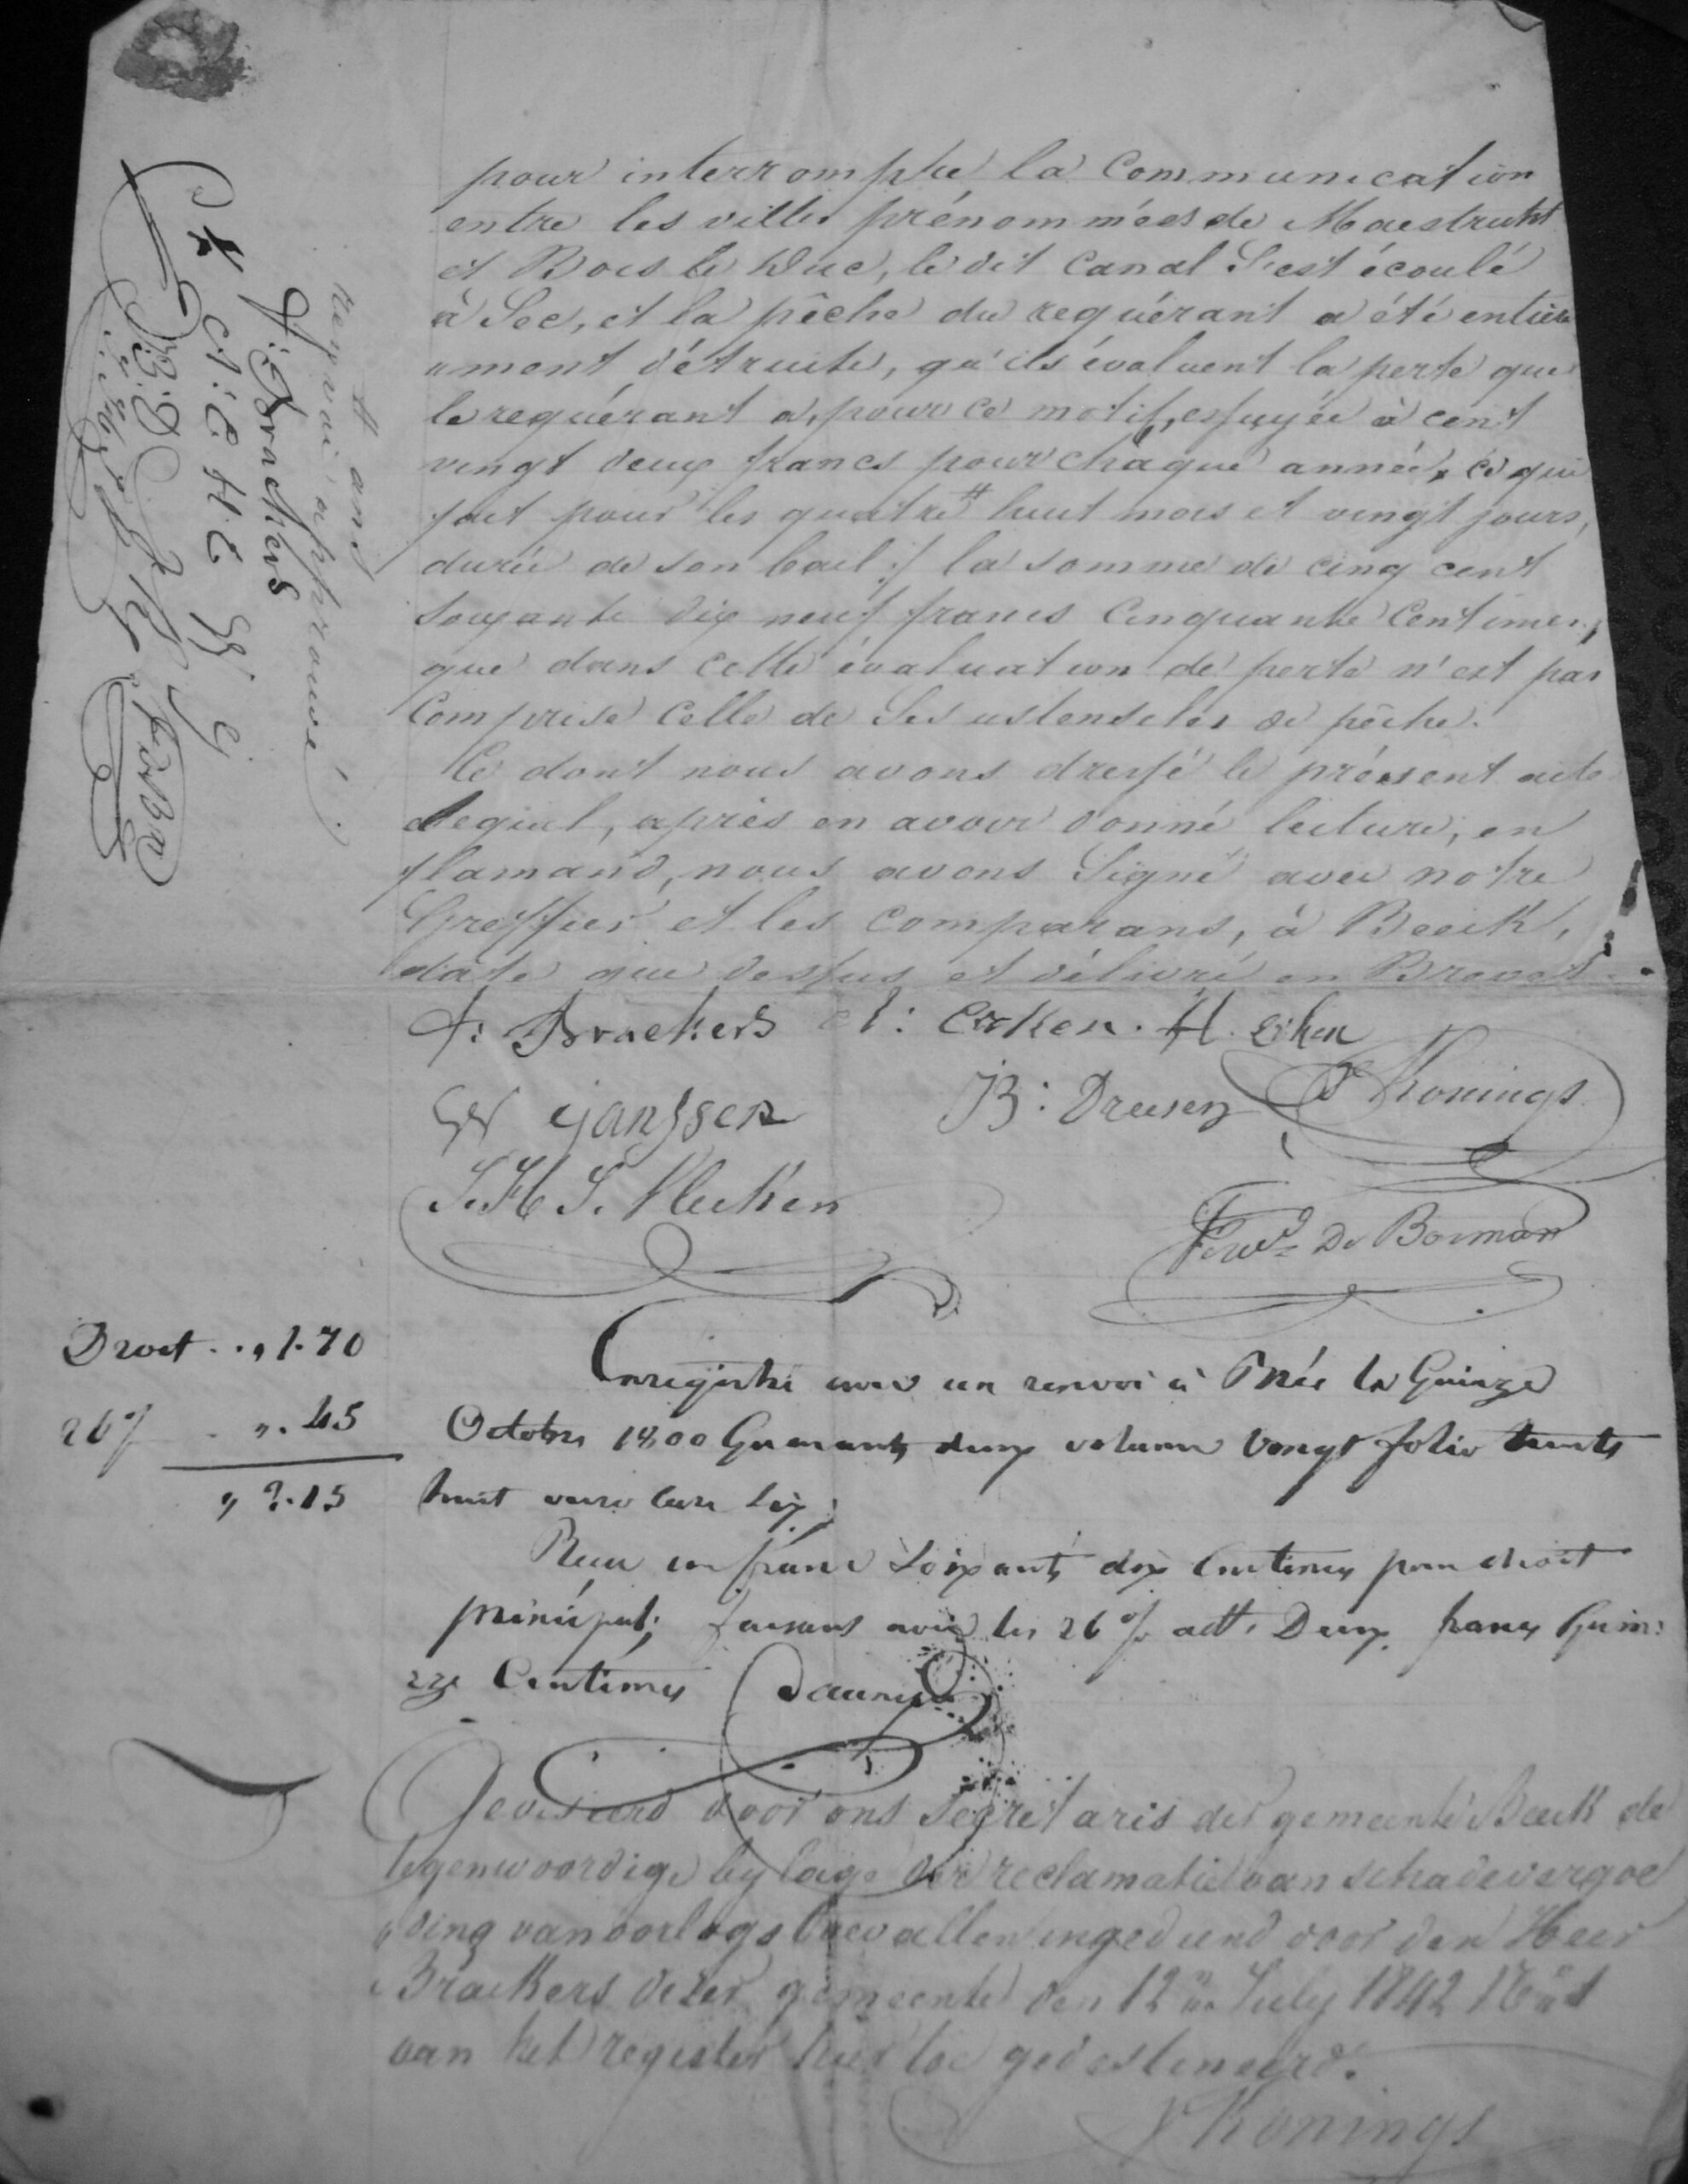 pour interrompre la Communication
entre les villes prénommées de Maestricht
et Bois le Duc, le dit Canal S'est écoulé
à Sec, et la pêche du requérant a été entière
ument détruite, qu'ils évaluent la perte que
le requérant a, pour ce motif, essuyée à cent
vingt deux francs pour chaque année, ce qui
fait pour les quatre # huit mois et vingt jours,
durée de son bail :/ la somme de cinq cent
soixante dix neuf francs Cinquante Centimes,
que dans cette évaluation de perte n'est pas
Comprise Celle de Ses ustensiles de pêche.
Ce dont nous avons dressé le présent acte
lequel, après en avoir donné lecture, en
flamand, nous avons Signé avec notre
Greffier et les Comparans, à Beeck,
date que dessus et délivré en Brevet.
# ans
renvoi approuvé.
F: Braekers
F: Braekers C: Ecrken. H. Ecrken
W Janssen B: Dreesen Konings
S. H. S. Vlecken
Ferd. De Borman
Droit . . „ 1.70
26 % . „. 45
„ 2.15
Enregistré avec un renvoi à Brée le Quinze
Octobre 1800 Quarante deux volume Vingt folio trente
huit verso case Six.
Reçu un franc Soixante dix Centimes pour droit
principal; faisant avec les 26 % add. Deux francs Quin-
ze Centimes
Geviseerd door ons Secretaris der gemeente Beeck de
tegenwoordige bylage der reclamatie van schadevergoe
ding van oorlogs toevallen ingediend voor den Heer
Braekers dezer gemeente den 12n July 1842
van het register hier toe gedestineerd.
Konings